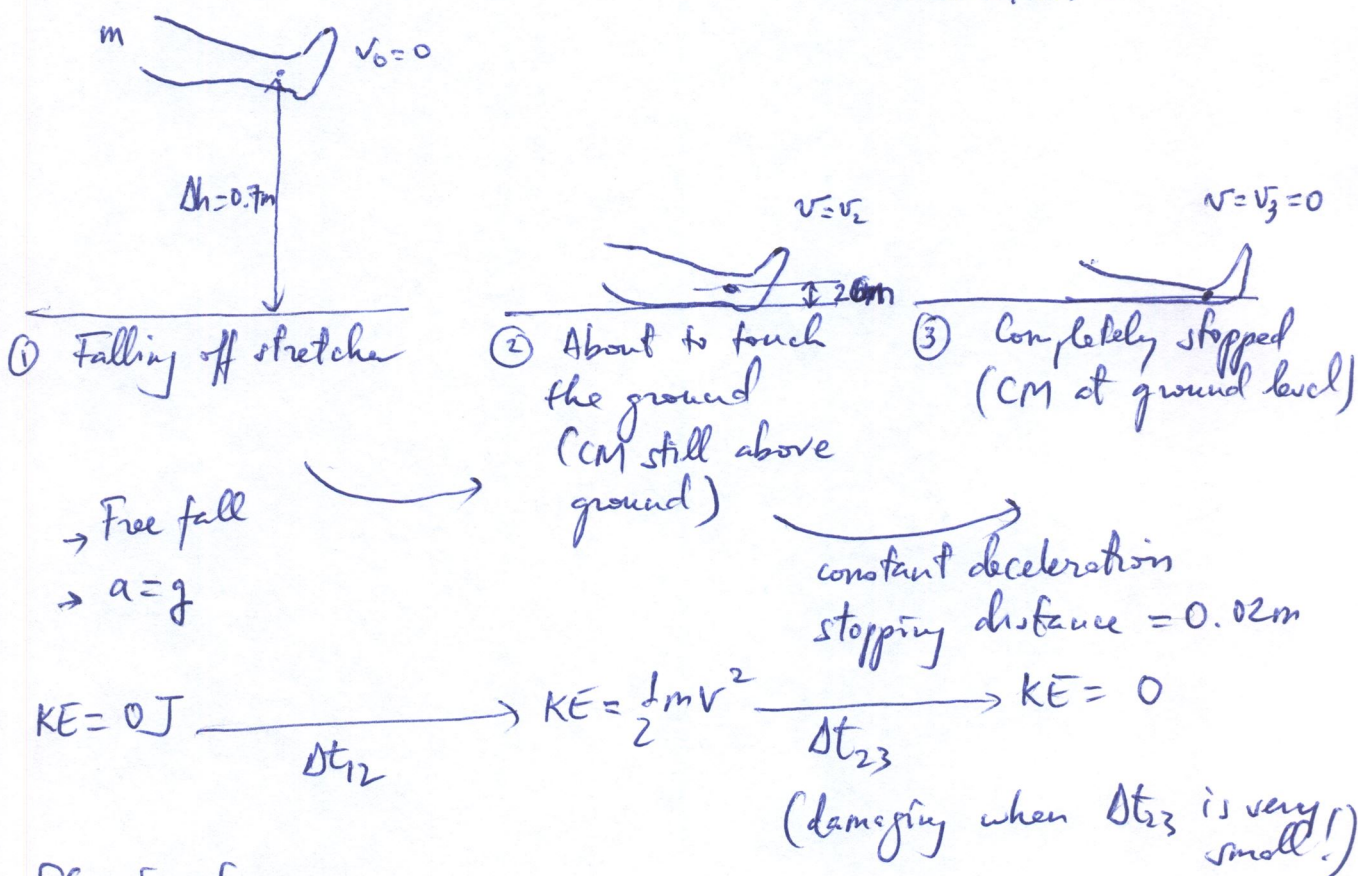 m
v₀=0
Δh=0.7m
v=v₂
v=v₃=0
① Falling off stretcher
② About to touch
the ground
(CM still above
ground)
③ Completely stopped
(CM at ground level)
→ Free fall
→ a=g
constant deceleration
stopping distance = 0.02m
KE= 0J
Δt₁₂
KE= ½mv²
Δt₂₃
KE= 0
(damaging when Δt₂₃ is very
small!)